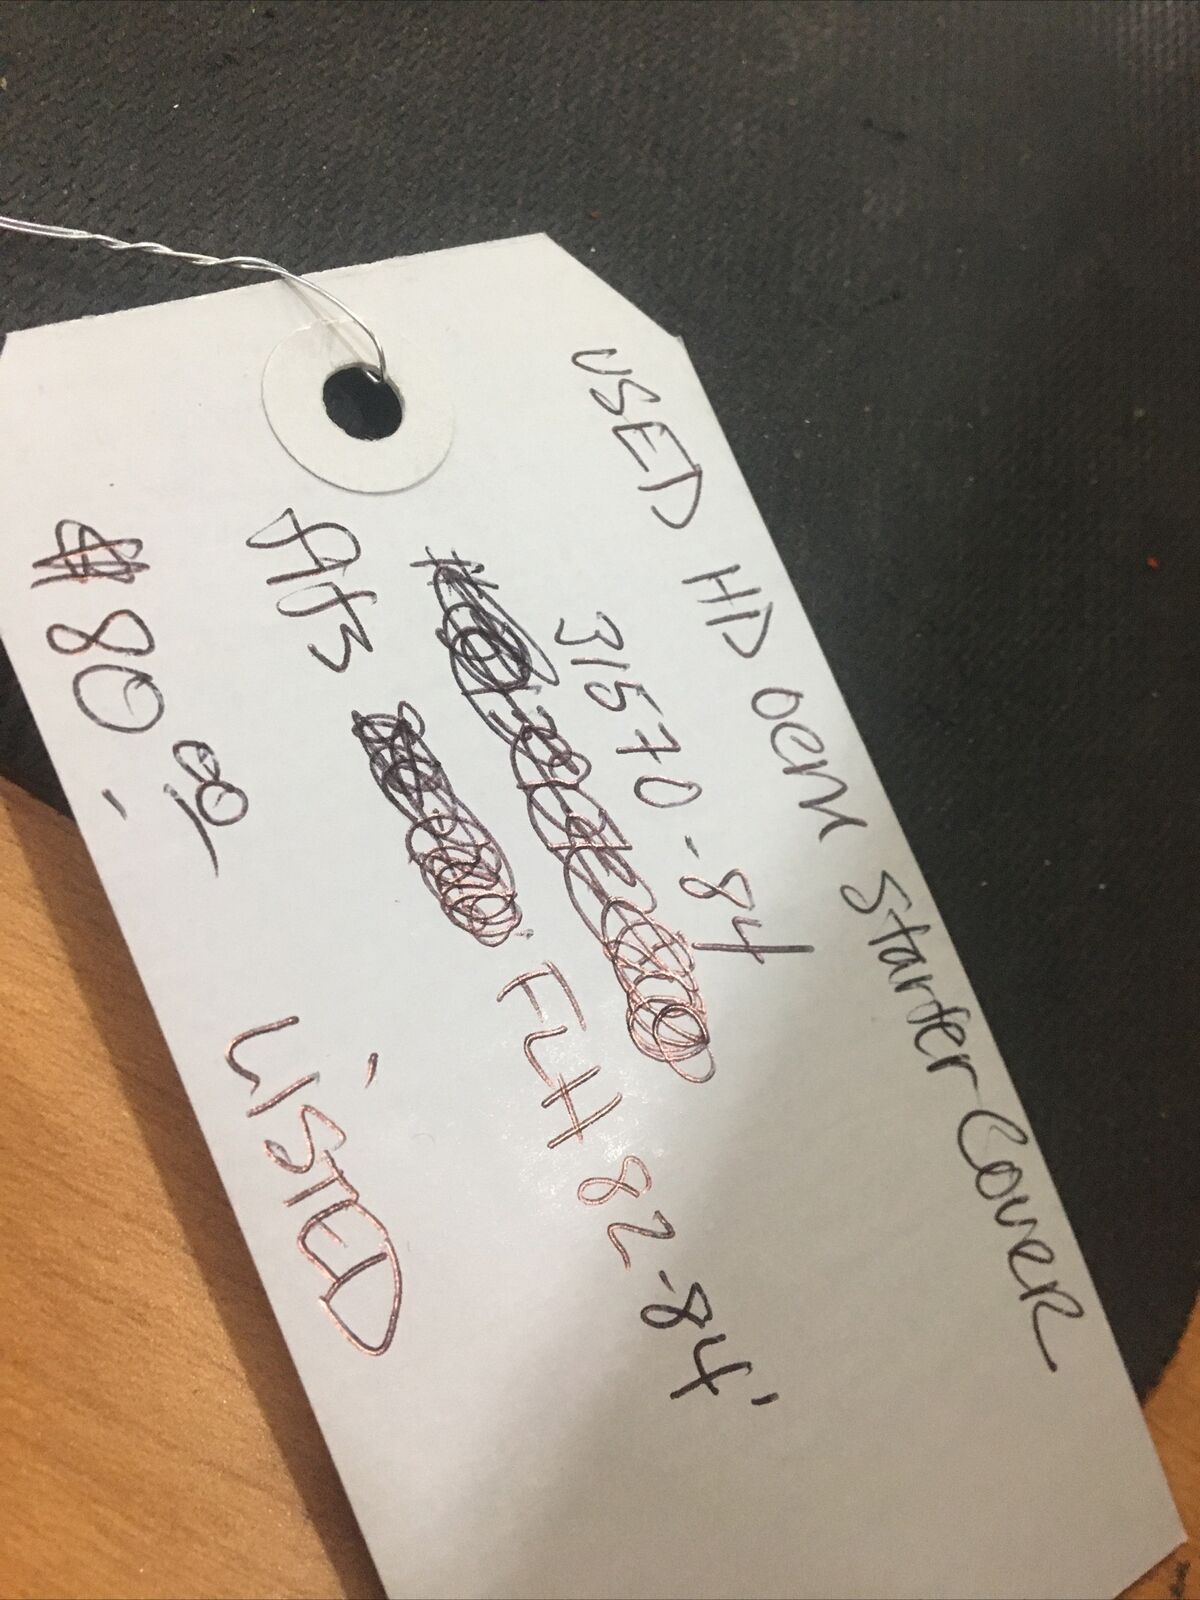 USED HD OEM Starter Cover
31570-84
Fits FLH 82-84'
$80.00 - LISTED